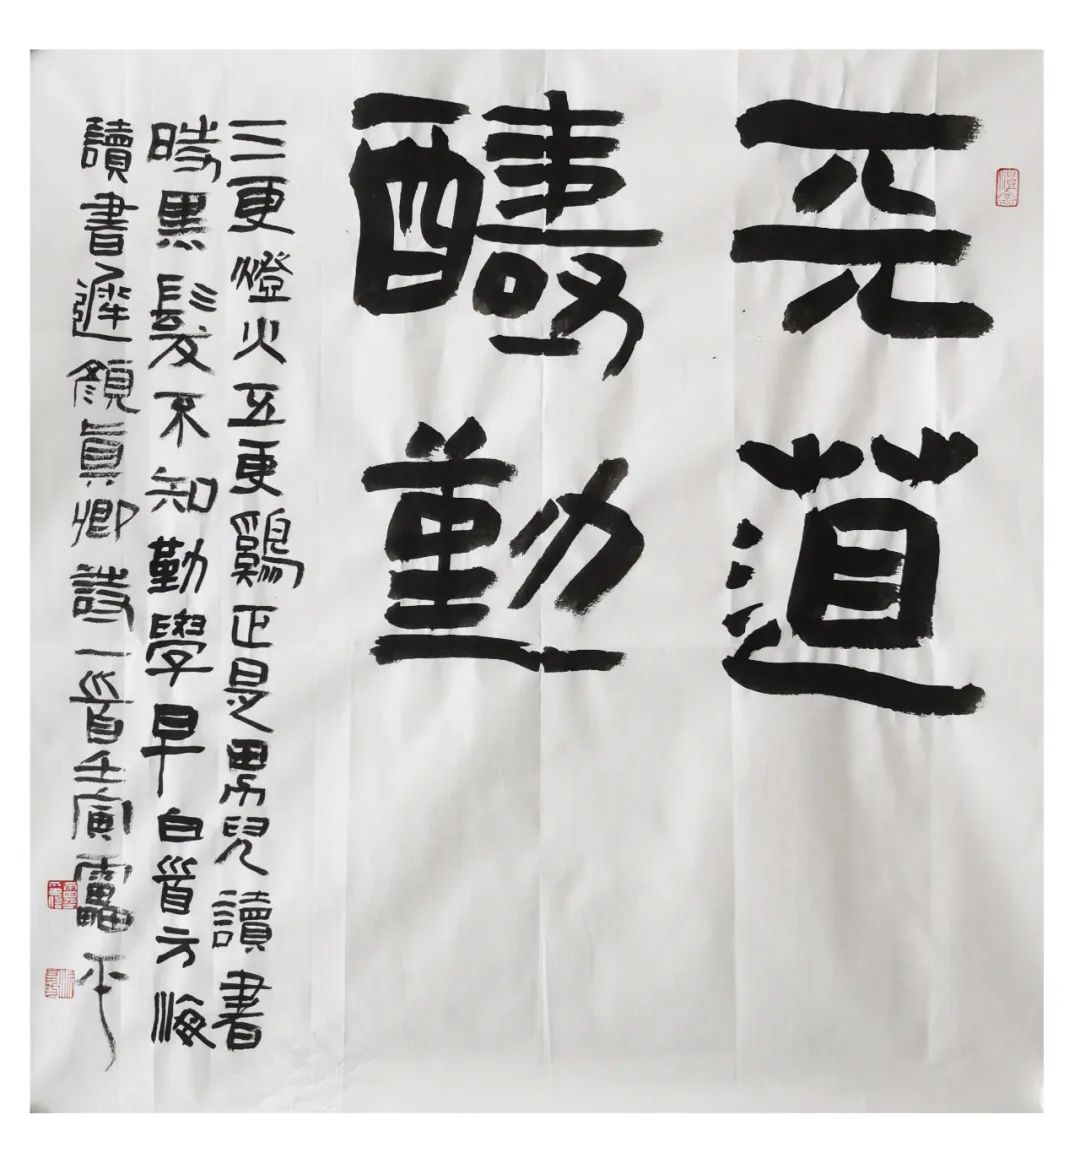 天道
醻勤
三更燈火五更鷄正是男兒讀書
時黑髮不知勤學早白首方悔
讀書遲顏真卿詩一首壬寅平